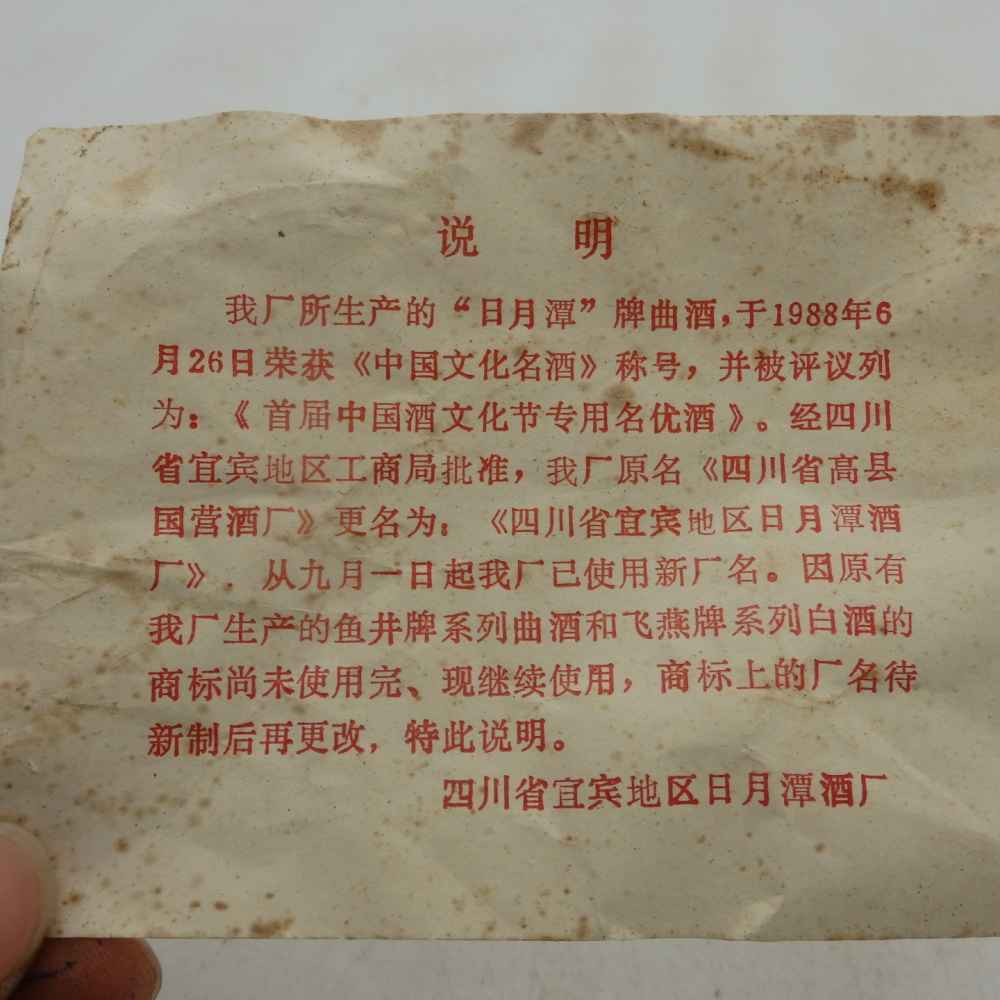 说 明
我厂所生产的“日月潭”牌曲酒,于1988年6
月26日荣获《中国文化名酒》称号，并被评议列
为：《首届中国酒文化节专用名优酒》。经四川
省宜宾地区工商局批准，我厂原名《四川省高县
国营酒厂》更名为：《四川省宜宾地区日月潭酒
厂》．从九月一日起我厂已使用新厂名。因原有
我厂生产的鱼井牌系列曲酒和飞燕牌系列白酒的
商标尚未使用完、现继续使用，商标上的厂名待
新制后再更改，特此说明。
四川省宜宾地区日月潭酒厂